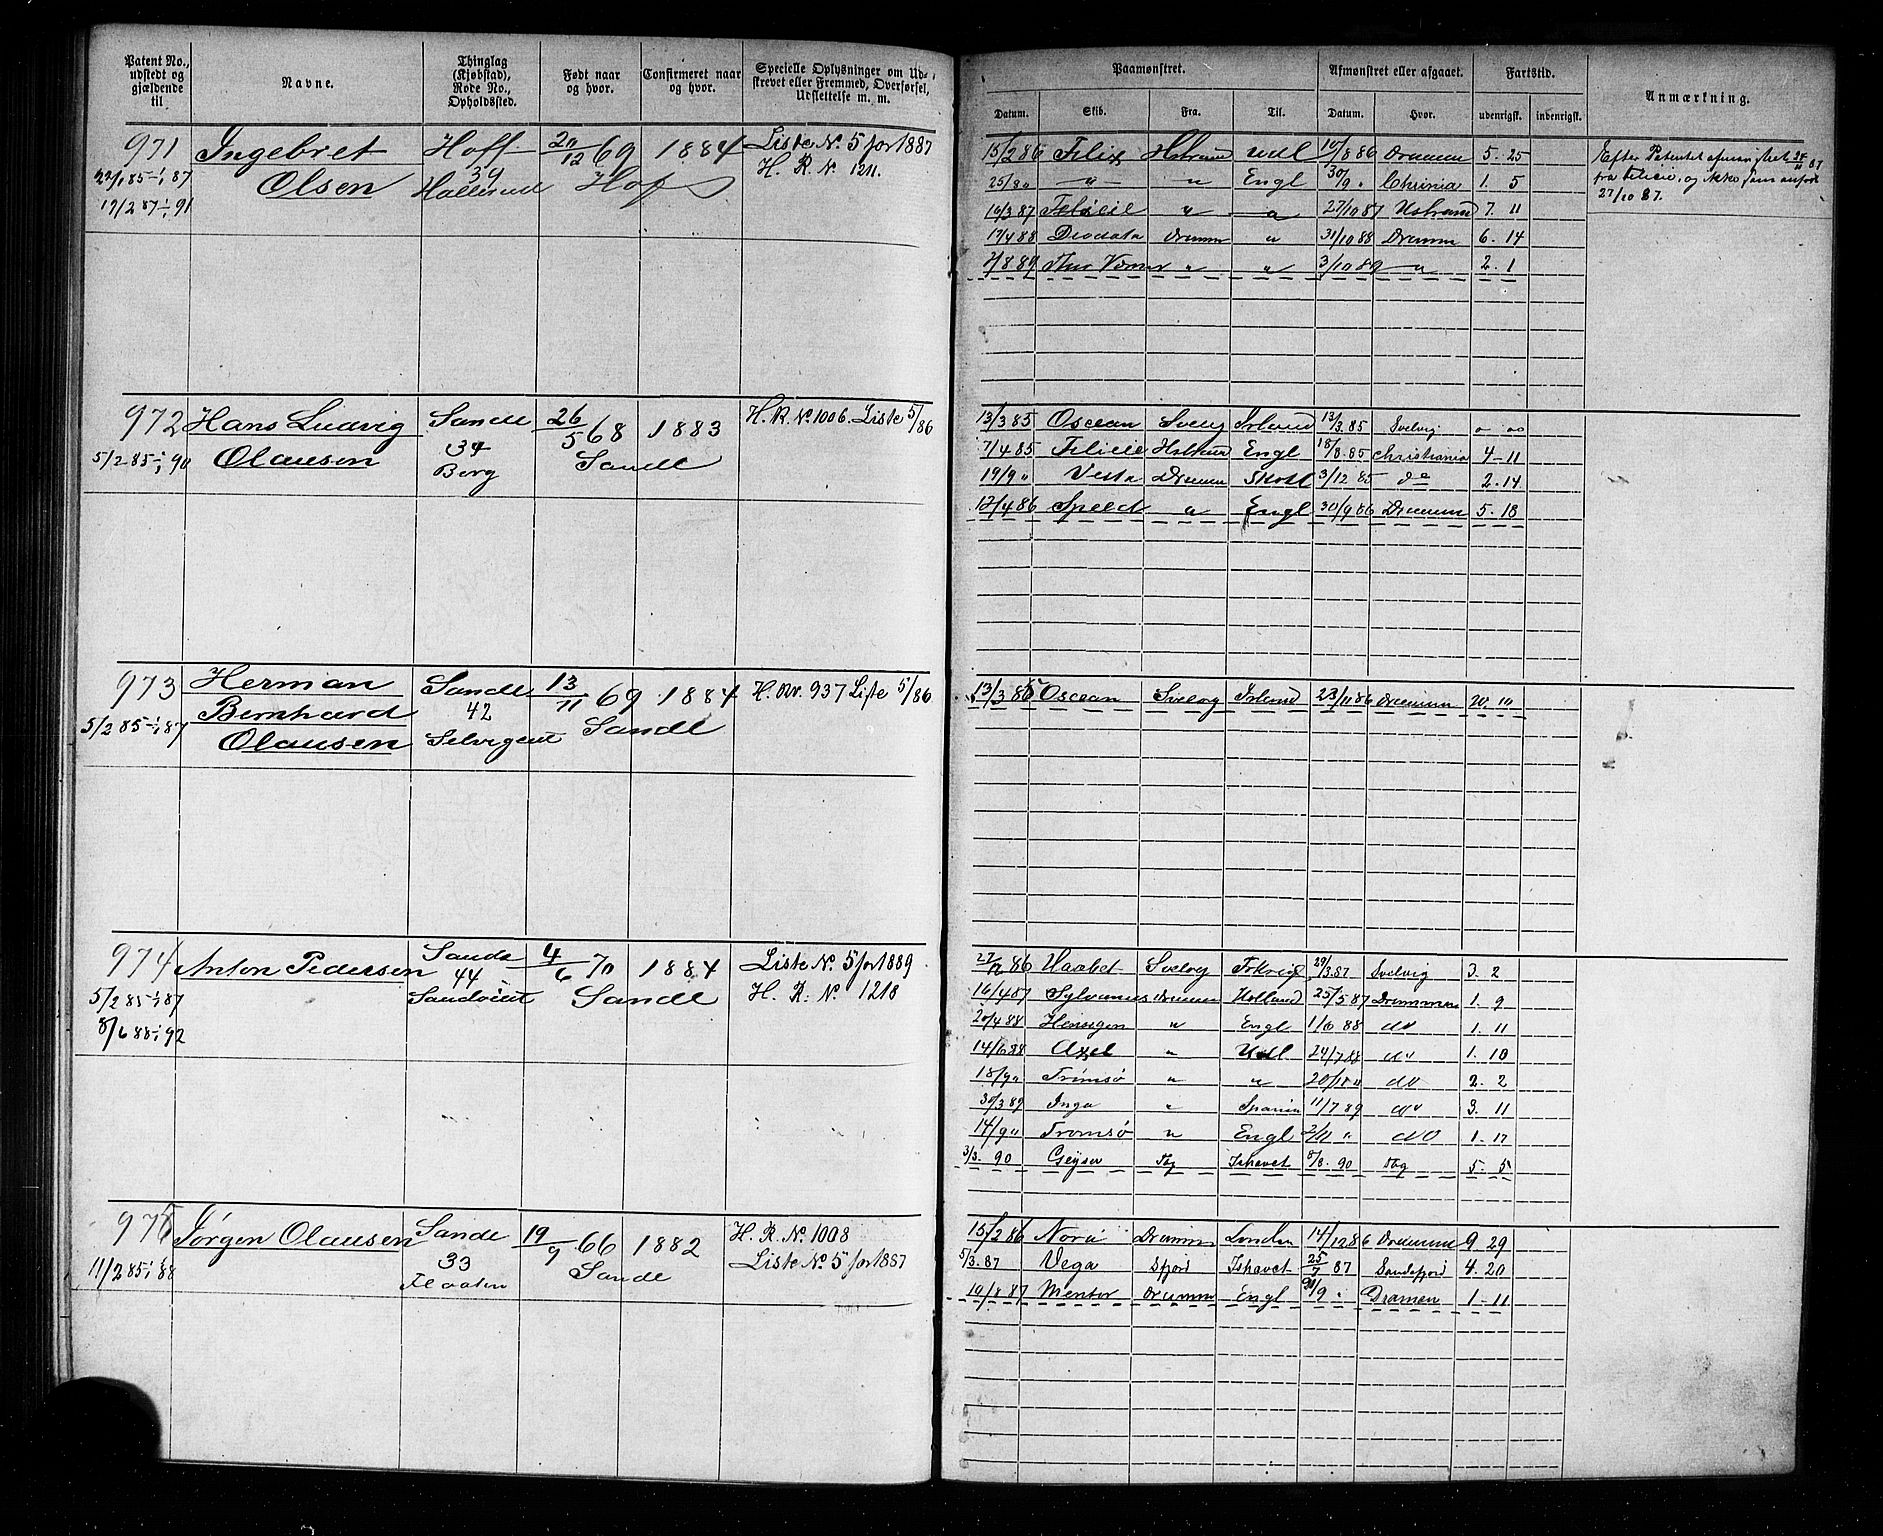 Patent No., udstedt og gjældende til.
Navne.
Thinglag (Kjøbstad), Rode No., Opholdssted.
Født naar og hvor.
Confirmeret naar og hvor.
Specielle Oplysninger om Udskrevet eller Fremmed, Overførsel, Udslettelse m. m.
Paamønstret.
Afmønstret eller afgaaet.
Fartstid.
Anmærkning.
Datum. Skib. Fra. Til. Datum. Hvor. udenrigsk. indenrigsk.
971 Ingebret Olsen
Hoff 39
20/12 69 Hof
1884
Liste No. 5 for 1887
H. R. No. 1211.
19/2 87 ÷ 91
15/2 86 Felix Udl 86 Drammen 5. 25
Engl 30/9 " Chrinia 1. 5
16/3 87 " 27/10 87 7. 11
17/4 88 Deodata Dramm " 31/10 88 Dramm 6. 14
" " 3/10 89 " 2. 1
Efter Patentet
fra Felicie, og ikke som anført
27/10 87.
972 Hans Ludvig Olausen
Sande 34 Berg
26/5 68 Sande
1883
H. R. No. 1006. Liste 5/86
5/2 85 ÷ 90
13/3 85 Oscean Svelv 13/3.85 Svelvig
7/4 85 Felicie Engl 18/8.85 Christiania 4-11
19/9 " Vesta Dramm Skotl 3/12 85 do 2.14
17/4 86 Speed " Engl 30/9 86 Dramm 5. 18
973 Herman Bernhard Olausen
Sande 42 Selvigeut
13/11 69 Sande
1884
937 Liste 5/86
5/2 85 ÷ 87
13/3 85 Oscean Svelvg 23/11 86 Dramm
974 Anton Pedersen
Sande 44
4/6 70 Sande
1884
Liste No. 5 for 1889
H. R. No. 1218
5/2 85 ÷ 87
8/6 88 ÷ 92
86 Haabet Svelvg 29/3.87 Svelvig 3. 2
16/4 87 Sylvanus Dramm Holland 25/5 87 Drammen 1. 9
20/4 88 " Engl 88 do 1. 11
14/6 88 Axel " Udl 24/7 88 do 1. 10
18/9 " Tromsø " " do 2. 2
30/3 89 Inga " Spanien 11/7 89 do 3. 11
14/9 " Tromsø " Engl 2/11 " do 1. 17
3/3. 90 Geyser Tbg Ishavet 8. 90 Tbg 5. 5
975 Jørgen Olausen
Sande 33
19/9 66 Sande
1882
H. R. No. 1008
Liste No. 5 for 1887
11/2 85 ÷ 88
15/2 86 Nora Dramm London 14/12 86 Dramm 9. 29
5/3. 87 Vega Sfjord Ishavet 25/7 87 Sandefjord 4. 20
19/8 87 Mentor Dramm Engl Dramen 1-11